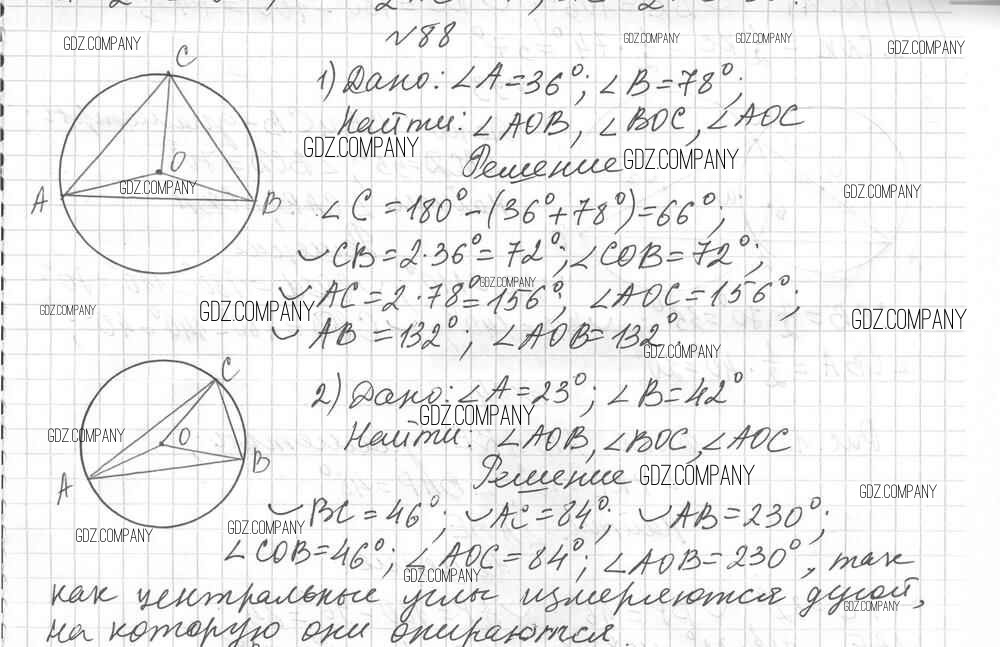 №88
1) Дано: ∠A = 36°; ∠B = 78°;
Найти: ∠AOB, ∠BOC, ∠AOC
Решение
∠C = 180° - (36° + 78°) = 66°;
◡CB = 2·36° = 72°; ∠COB = 72°;
◡AC = 2·78° = 156°; ∠AOC = 156°;
◡AB = 132°; ∠AOB = 132°.
C
O
A
B
2) Дано: ∠A = 23°; ∠B = 42°
Найти: ∠AOB, ∠BOC, ∠AOC
Решение
◡BC = 46°; ◡AC = 84°; ◡AB = 230°;
∠COB = 46°; ∠AOC = 84°; ∠AOB = 230°, так
как центральные углы измеряются дугой,
на которую они опираются.
C
O
B
A
GDZ.COMPANY
GDZ.COMPANY
GDZ.COMPANY
GDZ.COMPANY
GDZ.COMPANY
GDZ.COMPANY
GDZ.COMPANY
GDZ.COMPANY
GDZ.COMPANY
GDZ.COMPANY
GDZ.COMPANY
GDZ.COMPANY
GDZ.COMPANY
GDZ.COMPANY
GDZ.COMPANY
GDZ.COMPANY
GDZ.COMPANY
GDZ.COMPANY
GDZ.COMPANY
GDZ.COMPANY
GDZ.COMPANY